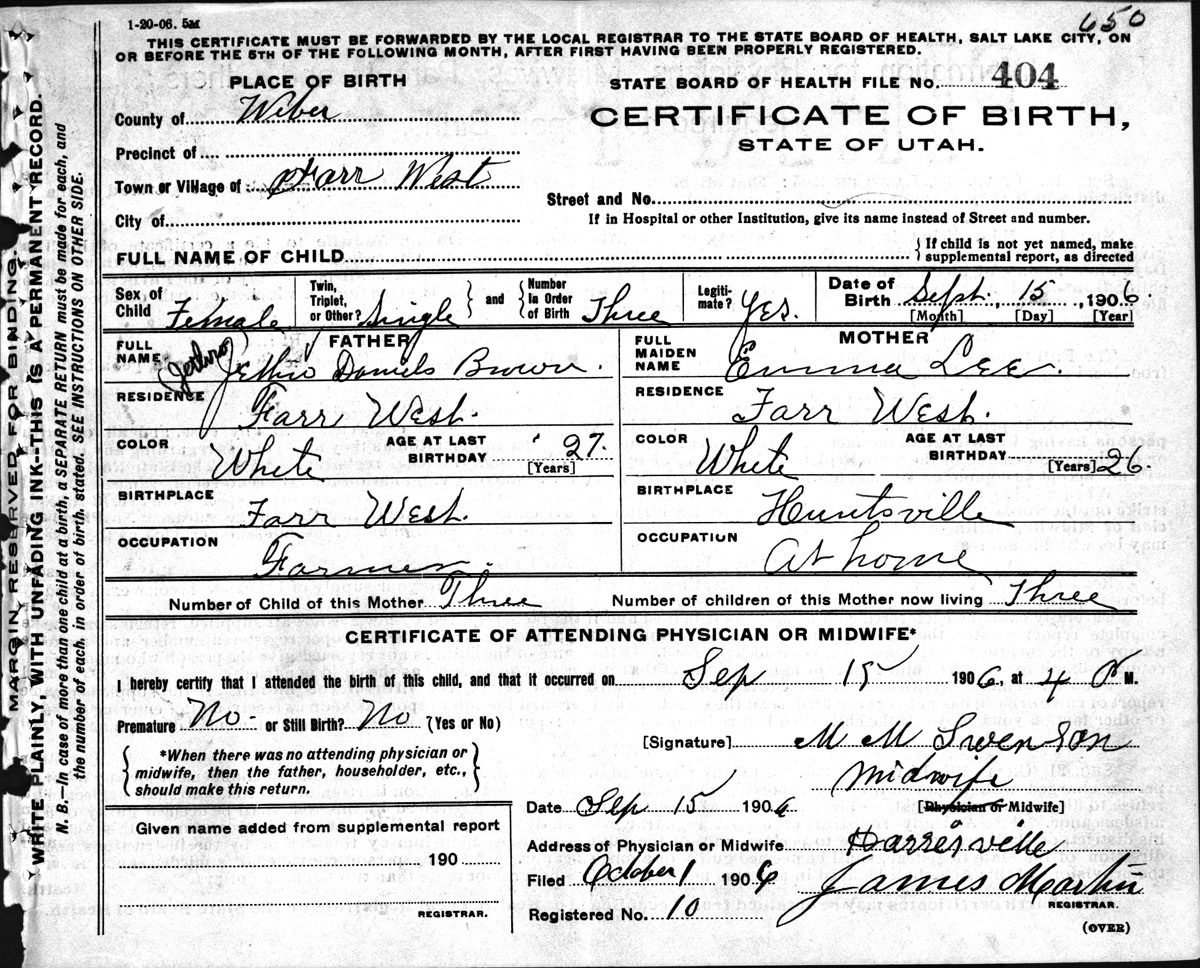 650
1-20-06. 5M
THIS CERTIFICATE MUST BE FORWARDED BY THE LOCAL REGISTRAR TO THE STATE BOARD OF HEALTH, SALT LAKE CITY, ON
OR BEFORE THE 5TH OF THE FOLLOWING MONTH, AFTER FIRST HAVING BEEN PROPERLY REGISTERED.
PLACE OF BIRTH
STATE BOARD OF HEALTH FILE NO. 404
County of Weber
CERTIFICATE OF BIRTH,
STATE OF UTAH.
Precinct of
Town or Village of Farr West
Street and No.
City of
If in Hospital or other Institution, give its name instead of Street and number.
FULL NAME OF CHILD
{ If child is not yet named, make
supplemental report, as directed
Sex of Child Female
Twin, Triplet, or Other? Single } and { Number In Order of Birth Three
Legiti- mate? Yes.
Date of Birth Sept. 15, 1906
[Month] [Day] [Year]
FATHER
FULL NAME Jethro Jethro Daniels Brown.
RESIDENCE Farr West.
COLOR White
AGE AT LAST BIRTHDAY 27.
[Years]
BIRTHPLACE Farr West.
OCCUPATION Farmer.
MOTHER
FULL MAIDEN NAME Emma Lee.
RESIDENCE Farr West.
COLOR White
AGE AT LAST BIRTHDAY
[Years] 26.
BIRTHPLACE Huntsville
OCCUPATION At home
Number of Child of this Mother Three
Number of children of this Mother now living Three
CERTIFICATE OF ATTENDING PHYSICIAN OR MIDWIFE*
I hereby certify that I attended the birth of this child, and that it occurred on Sep 15 1906, at 4 P M.
Premature No - or Still Birth? No (Yes or No)
{ *When there was no attending physician or
midwife, then the father, householder, etc.,
should make this return. }
[Signature] M M Swenson
Midwife
Date Sep 15 1906
[Physician or Midwife]
Given name added from supplemental report
190
REGISTRAR.
Address of Physician or Midwife Harrisville
Filed October 1 1906 James Martin
REGISTRAR.
Registered No. 10
(OVER)
MARGIN RESERVED FOR BINDING.
WRITE PLAINLY, WITH UNFADING INK--THIS IS A PERMANENT RECORD.
N. B.—In case of more than one child at a birth, a SEPARATE RETURN must be made for each, and
the number of each, in order of birth, stated. SEE INSTRUCTIONS ON OTHER SIDE.